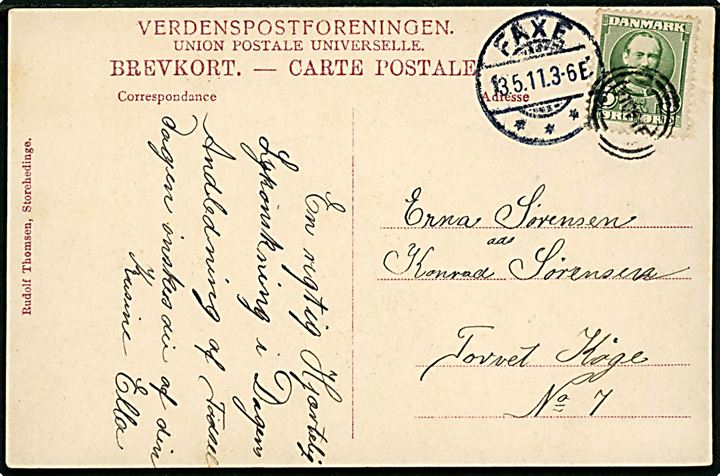 VERDENSPOSTFORENINGEN.
UNION POSTALE UNIVERSELLE.
BREVKORT. — CARTE POSTALE
Correspondance
Adresse
FAXE
13.5.11.3-6E.
DANMARK
5 ØRE
Rudolf Thomsen, Storehedinge.
En rigtig Hjærtelig
Lykønskning i Dagens
Andledning af Fødsel
dagen ønskes du af din
Kusine Ella
Erna Sørensen
ads
Konrad Sørensen
Torvet Køge
No 7